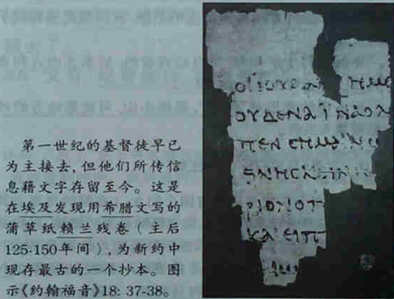 第一世纪的基督徒早已
为主接去，但他们所传信
息藉文字存留至今。这是
在埃及发现用希腊文写的
蒲草纸赖兰残卷（主后
125-150年间），为新约中
现存最古的一个抄本。图
示《约翰福音》18: 37-38。
ΟΙΙΟΥΔΑΙ ΗΜΕ
ΟΥΔΕΝΑΪΝΑΟΛ
ΠΕΝCΗΜΑΙΝ
ΡΙΟΝΟΠ
ΚΑΙΕΙΠ